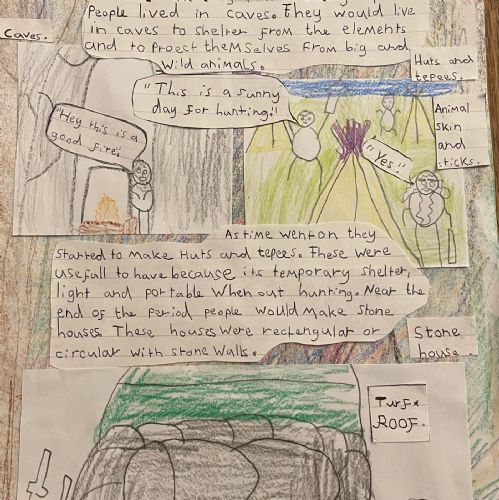 People lived in caves. They would live
in caves to shelter from the elements
and to proect themselves from big and
wild animals.
Caves.
Huts and
tepees.
"This is a sunny
day for hunting."
"Hey this is a
good fire."
"Yes."
Animal
skin
and
sticks.
As time went on they
started to make huts and tepees. These were
usefall to have because its temporary shelter,
light and portable when out hunting. Near the
end of the period people would make stone
houses. These houses were rectengular or
circular with stone walls.
Stone
house.
Turf
ROOF.